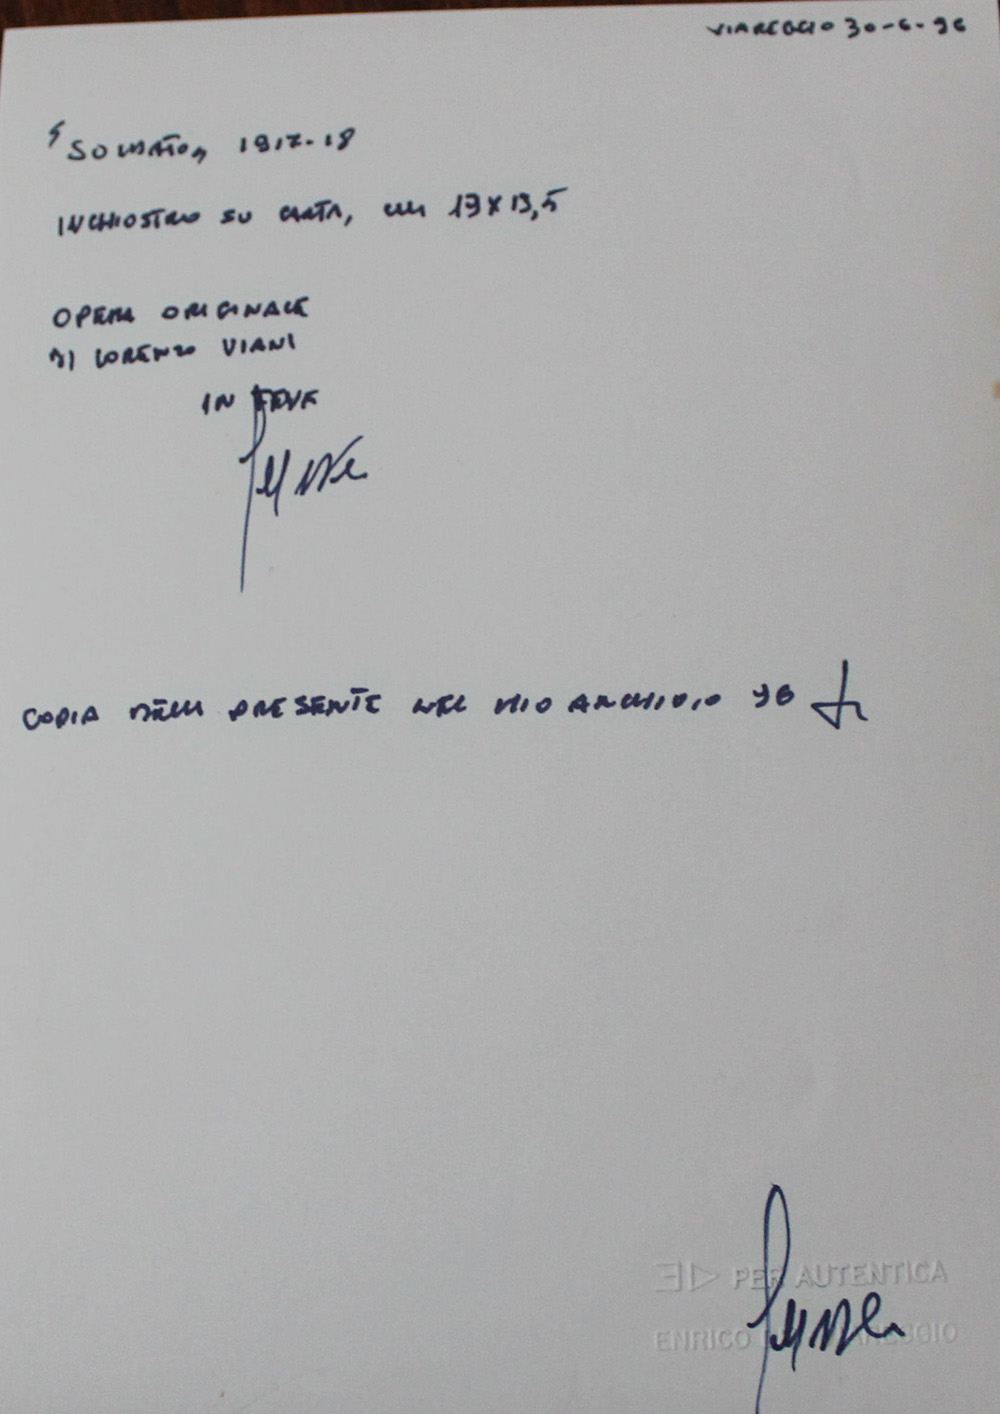 VIAREGGIO 30-6-96
SOLDATO, 1917-18
INCHIOSTRO SU CARTA, cm 13X13,5
OPERA ORIGINALE
DI LORENZO VIANI
IN FEDE
COPIA DELLA PRESENTE NEL MIO ARCHIVIO 96
PER AUTENTICA
ENRICO VIAREGGIO